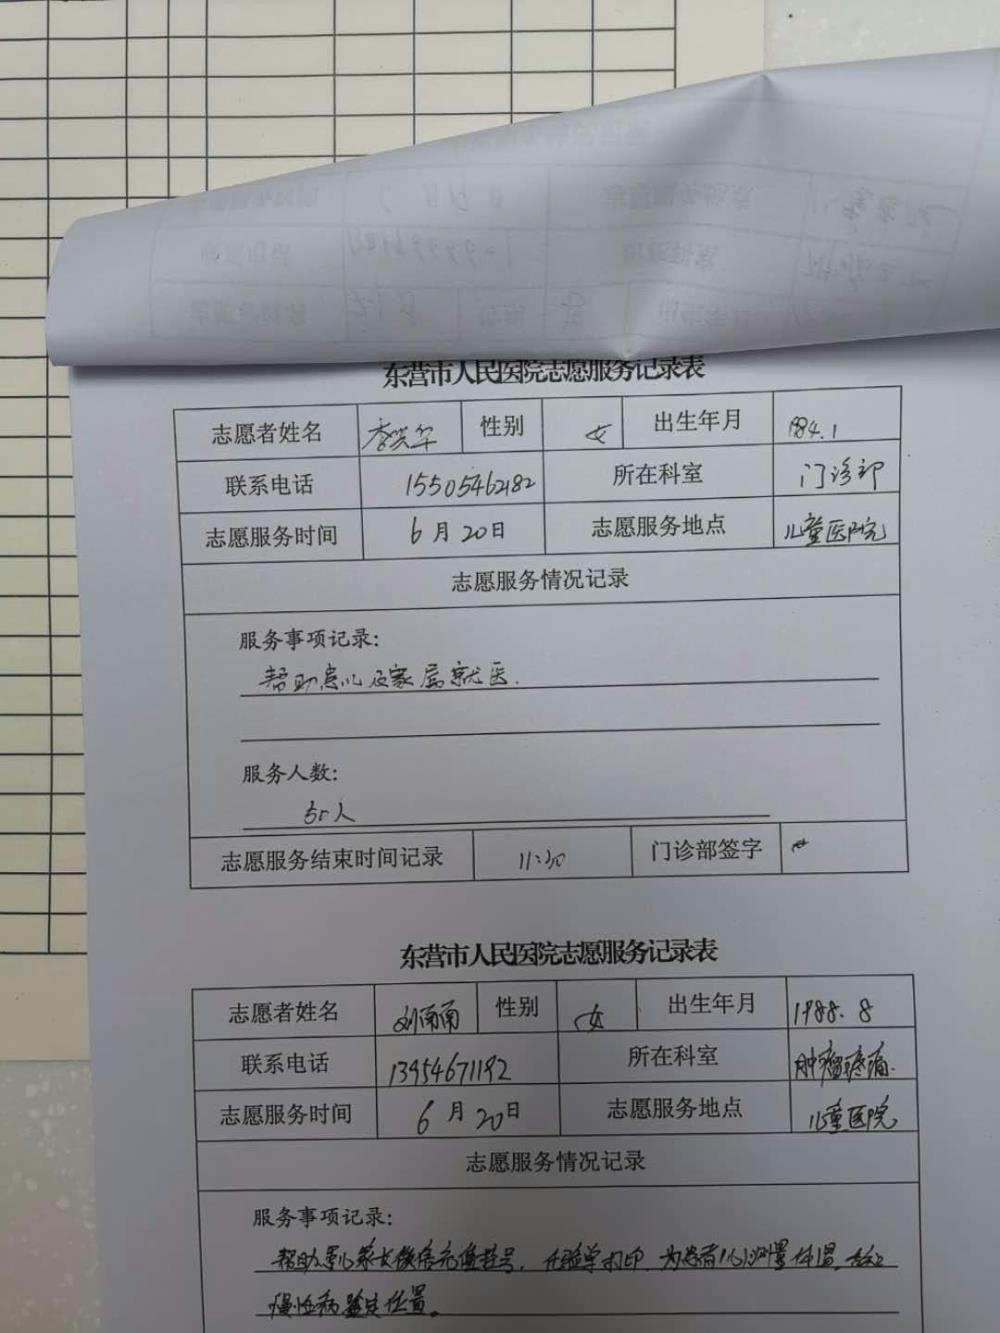 东营市人民医院志愿服务记录表
志愿者姓名 李兴华 性别 女 出生年月 1984.1
联系电话 15505462182 所在科室 门诊部
志愿服务时间 6月20日 志愿服务地点 儿童医院
志愿服务情况记录
服务事项记录:
帮助患儿及家属就医.
服务人数:
50人
志愿服务结束时间记录 11:30 门诊部签字
东营市人民医院志愿服务记录表
志愿者姓名 刘雨雨 性别 女 出生年月 1988.8
联系电话 13954671192 所在科室 肿瘤疼痛.
志愿服务时间 6月20日 志愿服务地点 儿童医院
志愿服务情况记录
服务事项记录:
帮助患儿家长微信充值挂号, 化验单打印, 为患者儿测量体温,
慢性病鉴定位置。